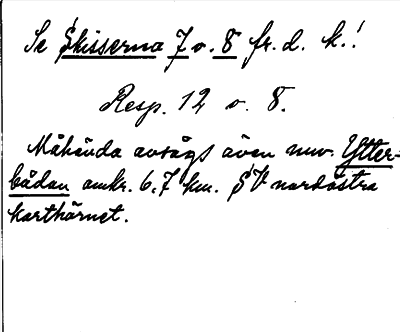 Se Skisserna 7 o. 8 fr. d. k.!
Resp. 12 o. 8.
Måhända avsågs även nuv. Ytter-
bådan omkr. 6,7 km. SV nordöstra
karthörnet.